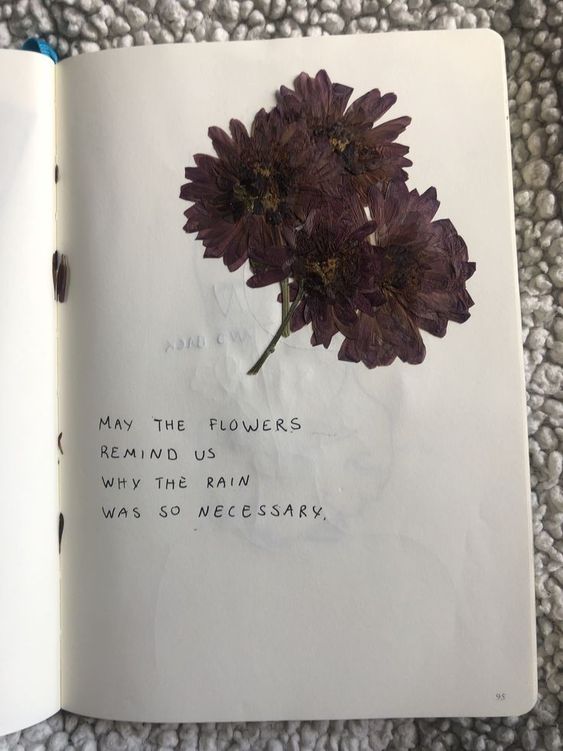 MAY THE FLOWERS
REMIND US
WHY THE RAIN
WAS SO NECESSARY.
95